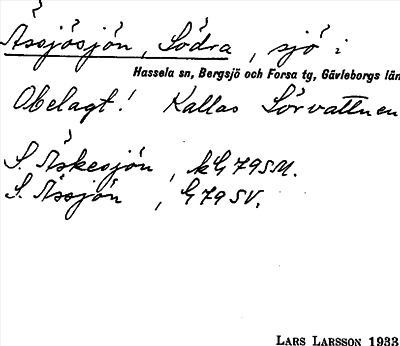 Åssjösjön, Södra, sjö i
Hassela sn, Bergsjö och Forsa tg, Gävleborgs län
Obelagt! Kallas Sörvattnen
S. Åskesjön, kG 79 SM.
S. Åssjön, G 79 SV.
LARS LARSSON 1933